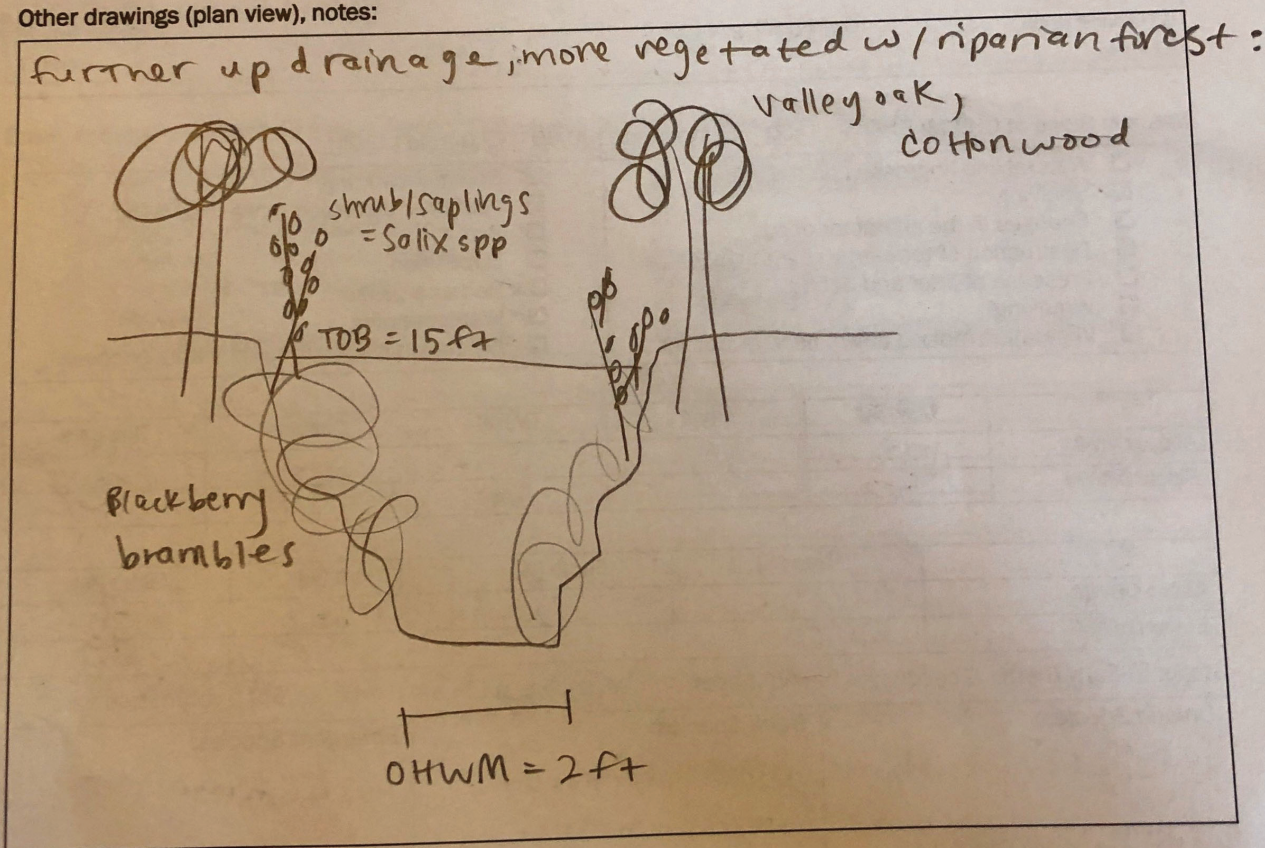 Other drawings (plan view), notes:
further up drainage; more vegetated w/ riparian forest:
valley oak,
cottonwood
shrub/saplings
= Salix spp
TOB = 15 ft
Blackberry
brambles
OHWM = 2 ft